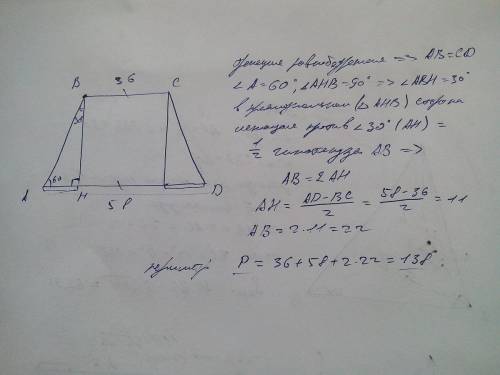 36
B C
30
60
A H D
58
трапеция равнобедренная => AB=CD
∠A=60°, ∠AHB=90° => ∠ABH=30°
в треугольнике (△AHB) сторона
лежащая против ∠30° (AH) =
1/2 гипотенузы AB =>
AB=2AH
AH = AD-BC/2 = 58-36/2 = 11
AB=2·11=22
периметр P = 36+58+2·22=138